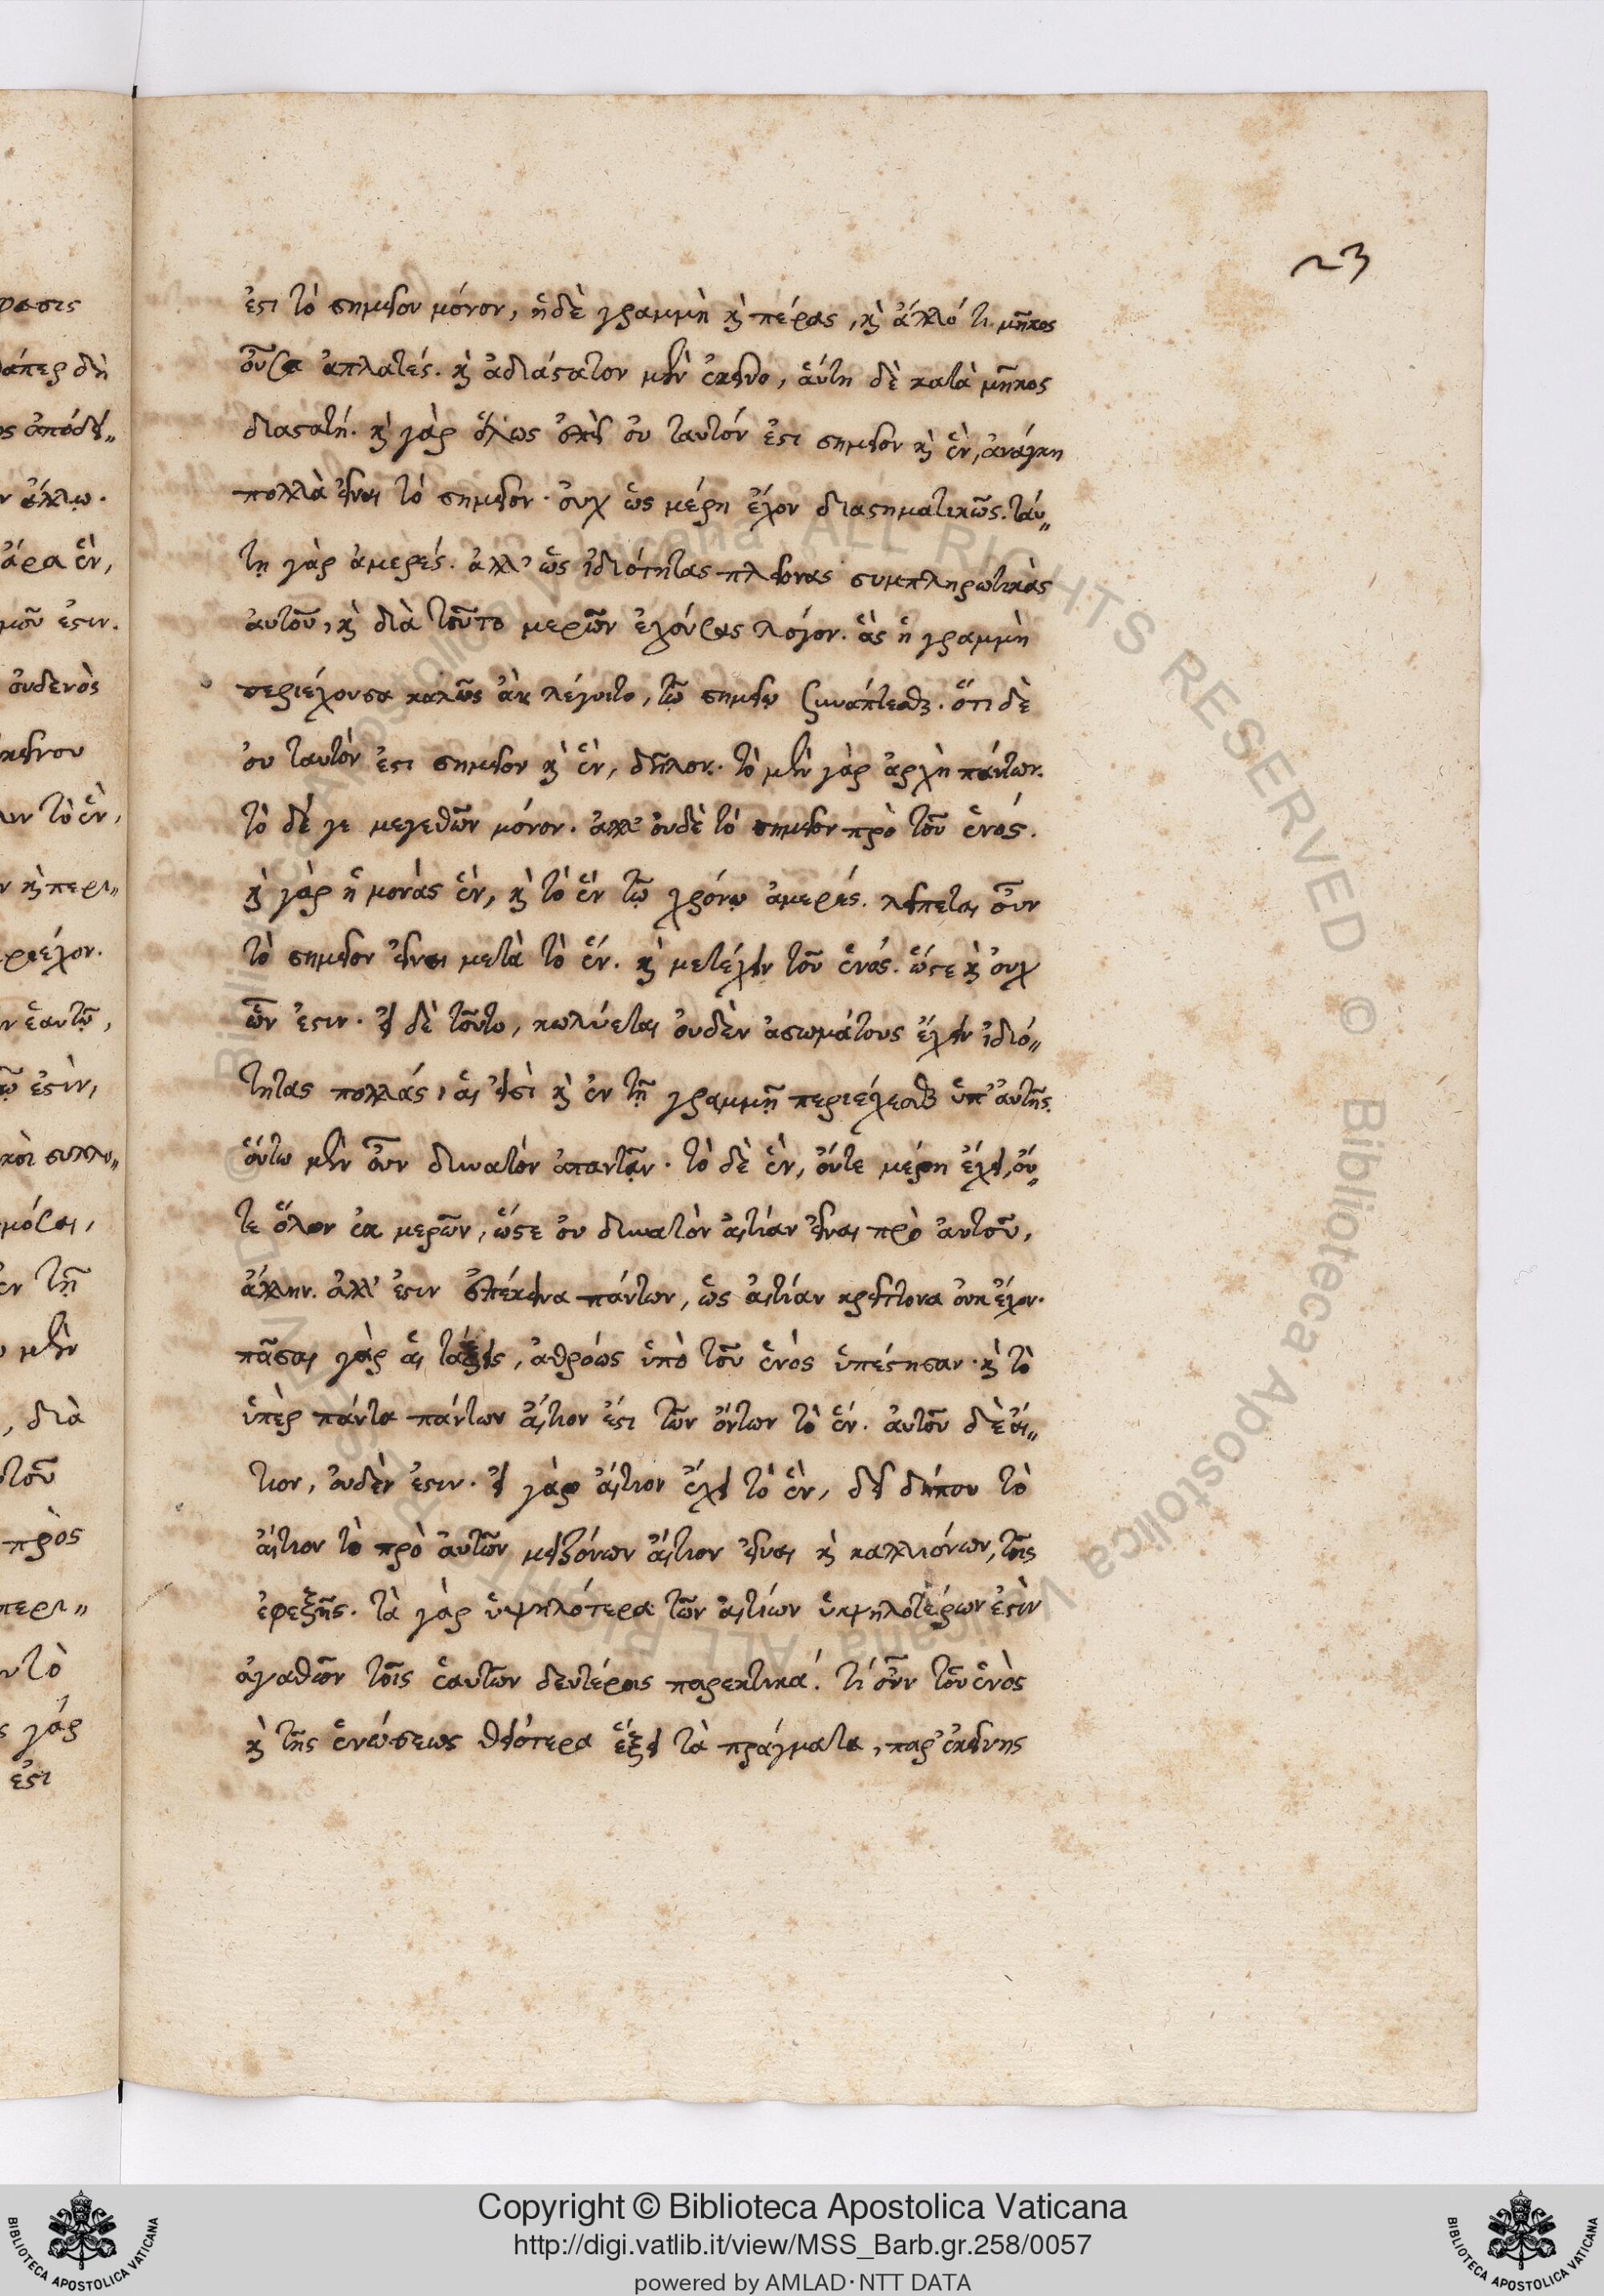 23
ἐστι τὸ σημεῖον μόνον, ἡ δὲ γραμμὴ καὶ πέρας, καὶ ἄλλό τι μῆκος
οὖσα ἀπλατές. καὶ ἀδιάστατον μὲν ἐκεῖνο, αὕτη δὲ κατὰ μῆκος
διαστατή. καὶ γὰρ ὅλως ἐπεὶ οὐ ταυτόν ἐστι σημεῖον καὶ ἓν, ἀνάγκη
πολλὰ εἶναι τὸ σημεῖον. οὐχ ὡς μέρη ἔχον διαστηματικῶς. ταύ„
τῃ γὰρ ἀμερές. ἀλλ' ὡς ἰδιότητας πλείονας συμπληρωτικὰς
αὐτοῦ, καὶ διὰ τοῦτο μερῶν ἐχούσας λόγον. ἃς ἡ γραμμὴ
περιέχουσα καλῶς ἂν λέγοιτο, τῷ σημείῳ συνάπτεσθαι. ὅτι δὲ
οὐ ταυτόν ἐστι σημεῖον καὶ ἓν, δῆλον. τὸ μὲν γὰρ ἀρχὴ πάντων.
τὸ δέ γε μεγεθῶν μόνον. ἀλλ' οὐδὲ τὸ σημεῖον πρὸ τοῦ ἑνός.
καὶ γὰρ ἡ μονὰς ἓν, καὶ τὸ ἐν τῷ χρόνῳ ἀμερές. λείπεται οὖν
τὸ σημεῖον εἶναι μετὰ τὸ ἕν. καὶ μετέχειν τοῦ ἑνός. ὥστε καὶ οὐχ
ἕν ἐστιν. εἰ δὲ τοῦτο, κωλύεται οὐδὲν ἀσωμάτους ἔχειν ἰδιό„
τητας πολλάς, αἵ εἰσὶ καὶ ἐν τῇ γραμμῇ περιέχεσθαι ὑπ' αὐτῆς.
οὕτω μὲν οὖν δυνατὸν ἀπαντᾷν. τὸ δὲ ἓν, οὔτε μέρη ἔχει, οὔ„
τε ὅλον ἐκ μερῶν, ὥστε οὐ δυνατὸν αἰτίαν εἶναι πρὸ αὐτοῦ,
ἄλλην. ἀλλ' ἔστιν ἐπέκεινα πάντων, ὡς αἰτίαν κρείττονα οὐκ ἔχον.
πᾶσαι γὰρ αἱ τάξεις, ἀθρόως ὑπὸ τοῦ ἑνὸς ὑπέστησαν. καὶ τὸ
ὑπὲρ πάντα πάντων αἴτιον ἐστι τῶν ὄντων τὸ ἕν. αὐτοῦ δὲ αἴ„
τιον, οὐδὲν ἐστιν. εἰ γὰρ αἴτιον ἔχει τὸ ἓν, δεῖ δήπου τὸ
αἴτιον τὸ πρὸ αὐτῶν μειζόνων αἴτιον εἶναι καὶ καλλιόνων, τοῖς
ἐφεξῆς. τὰ γὰρ ὑψηλότερα τῶν αἰτίων ὑψηλοτέρων ἐστὶν
ἀγαθῶν τοῖς ἑαυτῶν δευτέροις παρεκτικά. τί οὖν τοῦ ἑνὸς
καὶ τῆς ἑνώσεως θειότερα ἕξει τὰ πράγματα, παρ' ἐκείνης
Copyright © Biblioteca Apostolica Vaticana
http://digi.vatlib.it/view/MSS_Barb.gr.258/0057
powered by AMLAD·NTT DATA